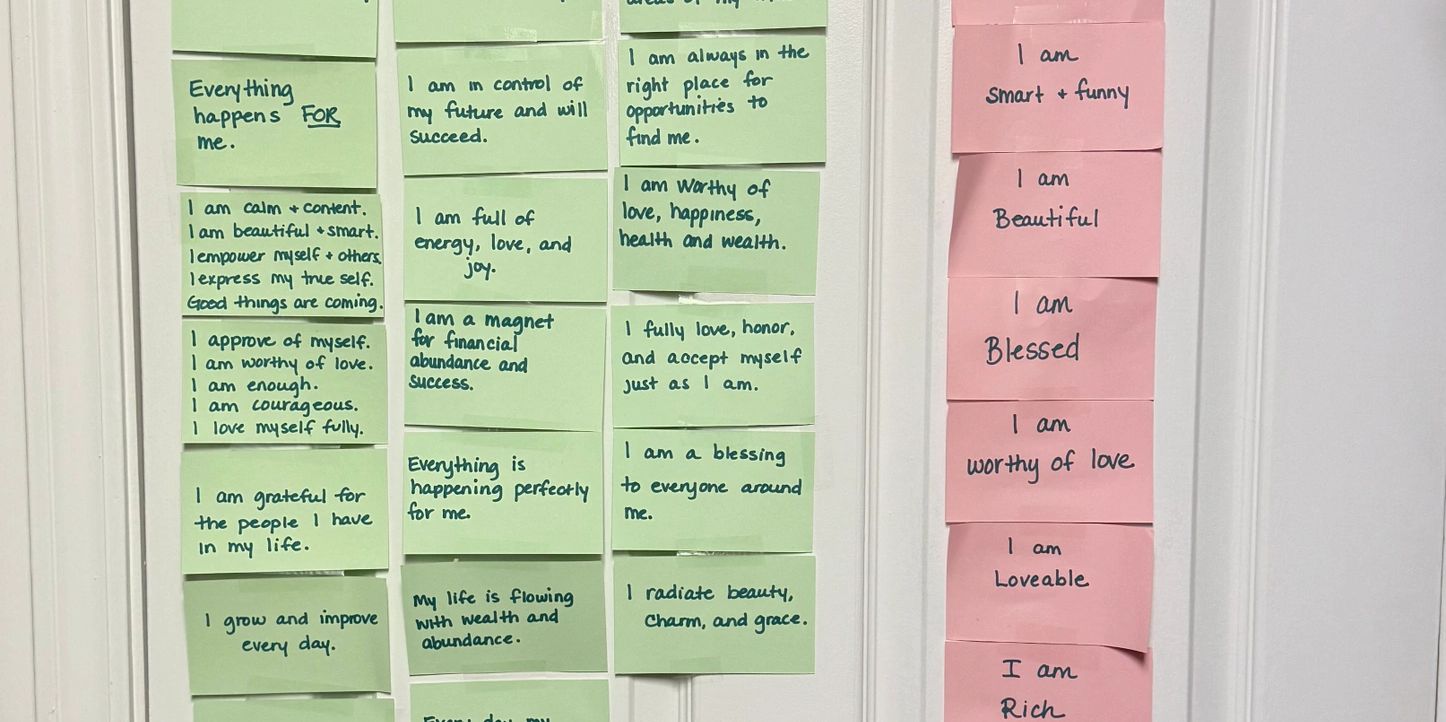 Everything
happens FOR
me.
I am calm + content.
I am beautiful + smart.
I empower myself + others.
I express my true self.
Good things are coming.
I approve of myself.
I am worthy of love.
I am enough.
I am courageous.
I love myself fully.
I am grateful for
the people I have
in my life.
I grow and improve
every day.
I am in control of
my future and will
succeed.
I am full of
energy, love, and
joy.
I am a magnet
for financial
abundance and
success.
Everything is
happening perfectly
for me.
My life is flowing
with wealth and
abundance.
Every day my
I am always in the
right place for
opportunities to
find me.
I am worthy of
love, happiness,
health and wealth.
I fully love, honor,
and accept myself
just as I am.
I am a blessing
to everyone around
me.
I radiate beauty,
charm, and grace.
I am
smart + funny
I am
Beautiful
I am
Blessed
I am
worthy of love
I am
Loveable
I am
Rich